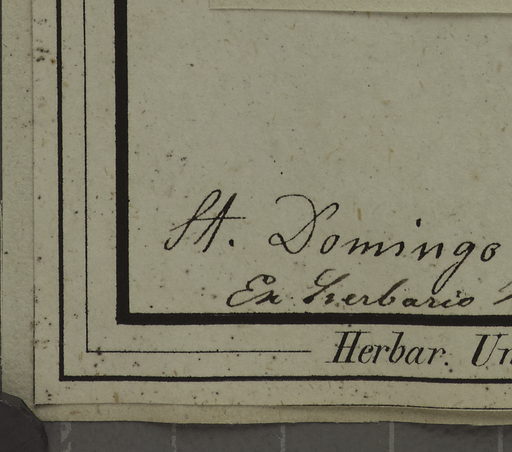 St. Domingo
Ex herbario
Herbar. Un